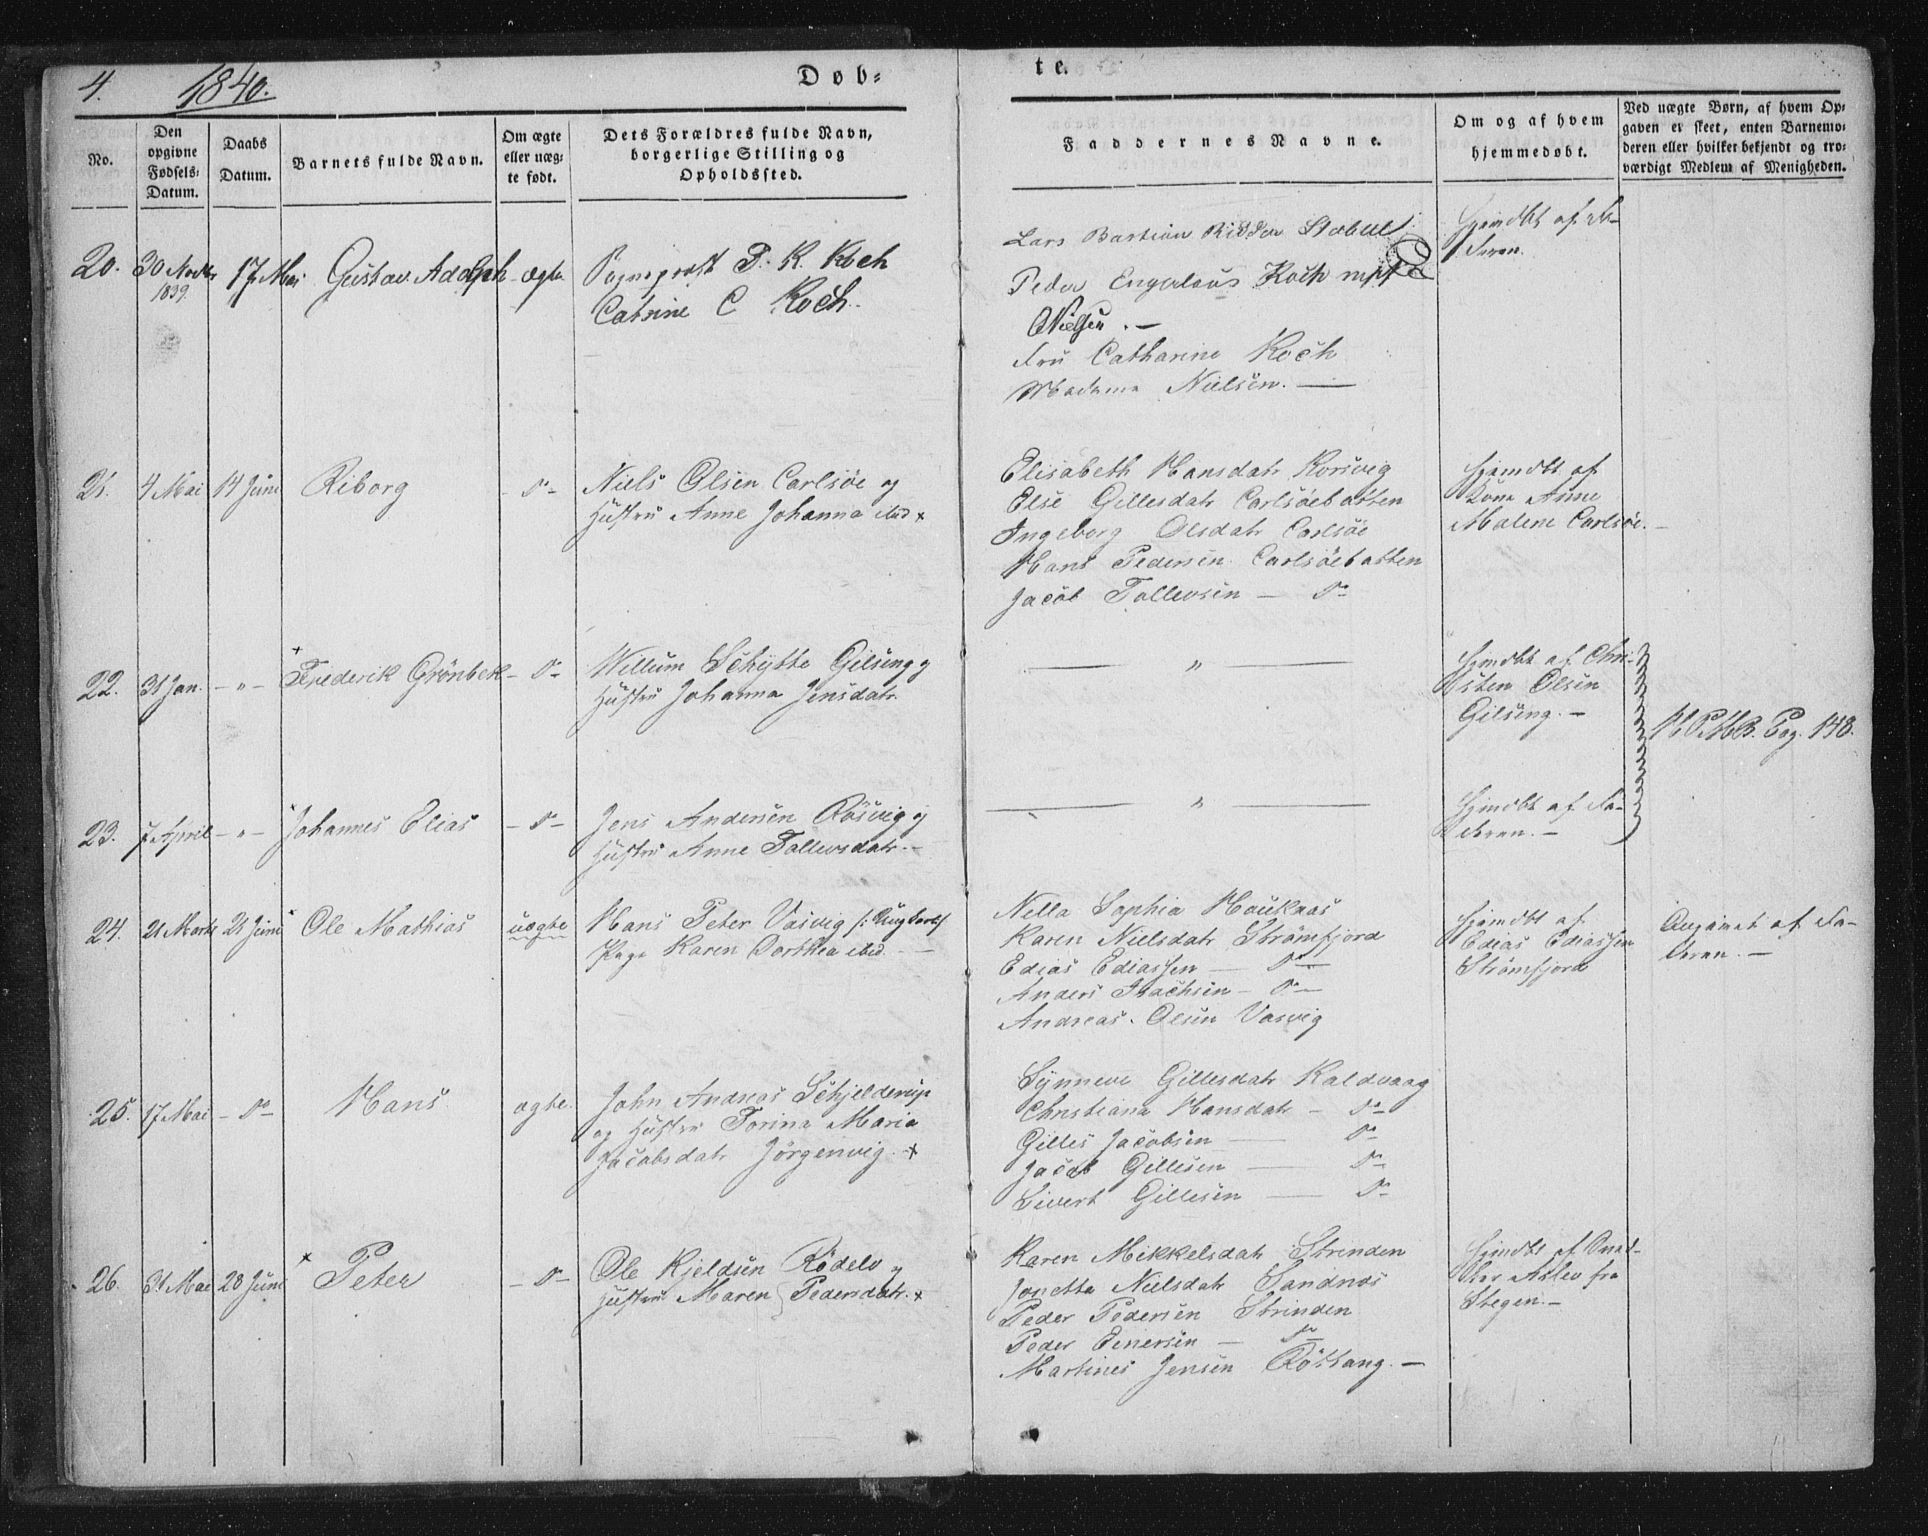 4. 1840. Døb-
te.
No.
Den opgivne Fødsels-Datum.
Daabs Datum.
Barnets fulde Navn.
Om ægte eller uæg-te født.
Dets Forældres fulde Navn, borgerlige Stilling og Opholdssted.
Faddernes Navne.
Om og af hvem hjemmedøbt.
Ved uægte Børn, af hvem Op-gaven er skeet, enten Barnemo-deren eller hvilket bekjendt og tro-værdigt Medlem af Menigheden.
20. 30 Novbr 1839. 17 Mai Gustav Adolph ægte
Sogneprest P. K. Koch
Catrine C Koch.
Lars Bastian Ridder Stabell
Peder Engelaus Koch
Nielsen. —
Fru Catharine Koch
Madame Nielsen. —
Hjemdbt af Fa-
deren.
21. 4 Mai 14 Juni Riborg - do -
Niels Olsen Carlsöe og
Hustru Anne Johanna ibid +
Elisabeth Hansdatr Korsvig
Else Gillesdatr Carlsöebatten
Ingeborg Olsdatr Carlsöe
Hans Pedersen Carlsöebatten
Jacob Tollevsen — do
Hjemdbt af
Kone Anne
Malene Carlsöe. —
22. 31 Jan. - " - + Frederik Grönbek - do -
Willum Schytte Gilseng og
Hustru Johanna Jensdatr
— " —
Hjemdbt af Chri-
sten Olsen
Gilseng. —
Pag. 148.
23. 7 April - " - Johannes Elias - do -
Jens Andersen Rösvig og
Hustru Anne Tollevsdatr. —
— " —
Hjemdbt af Fa-
deren. —
24. 21 Marts 21 Juni Ole Mathias uægte
Hans Peter Vasvig /: Ungkarl :/
Pige Karen Dorthea ibid. —
Nella Sophia Houkaas
Karen Nielsdatr Strömfjord
Edias Ediassen — do —
Anders Isachsen - do —
Andreas Olsen Vasvig
Hjemdbt af
Edias Ediassen
Strömfjord
Angivet af Fa-
deren. —
25. 17 Mai - do Hans ægte.
John Andreas Schjelderup
og Hustru Torina Maria
Jacobsdatr Jörgenvig. +
Synneve Gillesdatr Kaldvaag
Christiana Hansdatr - do -
Gilles Jacobsen — do
Jacob Gillesen — do
Sivert Gillesen — do
26. 31 Mai 28 Juni + Peter - do -
Ole Kjeldsen Rödelv og
Hustru Maren Pedersdatr. +
Karen Mikkelsdatr Strinden
Jonetta Nielsdatr Sandnæs
Peder Pedersen Strinden
Peder Einersen — do
Martines Jensen Röttang. —
Hjemdbt af
Aslev fra
Stegen. —